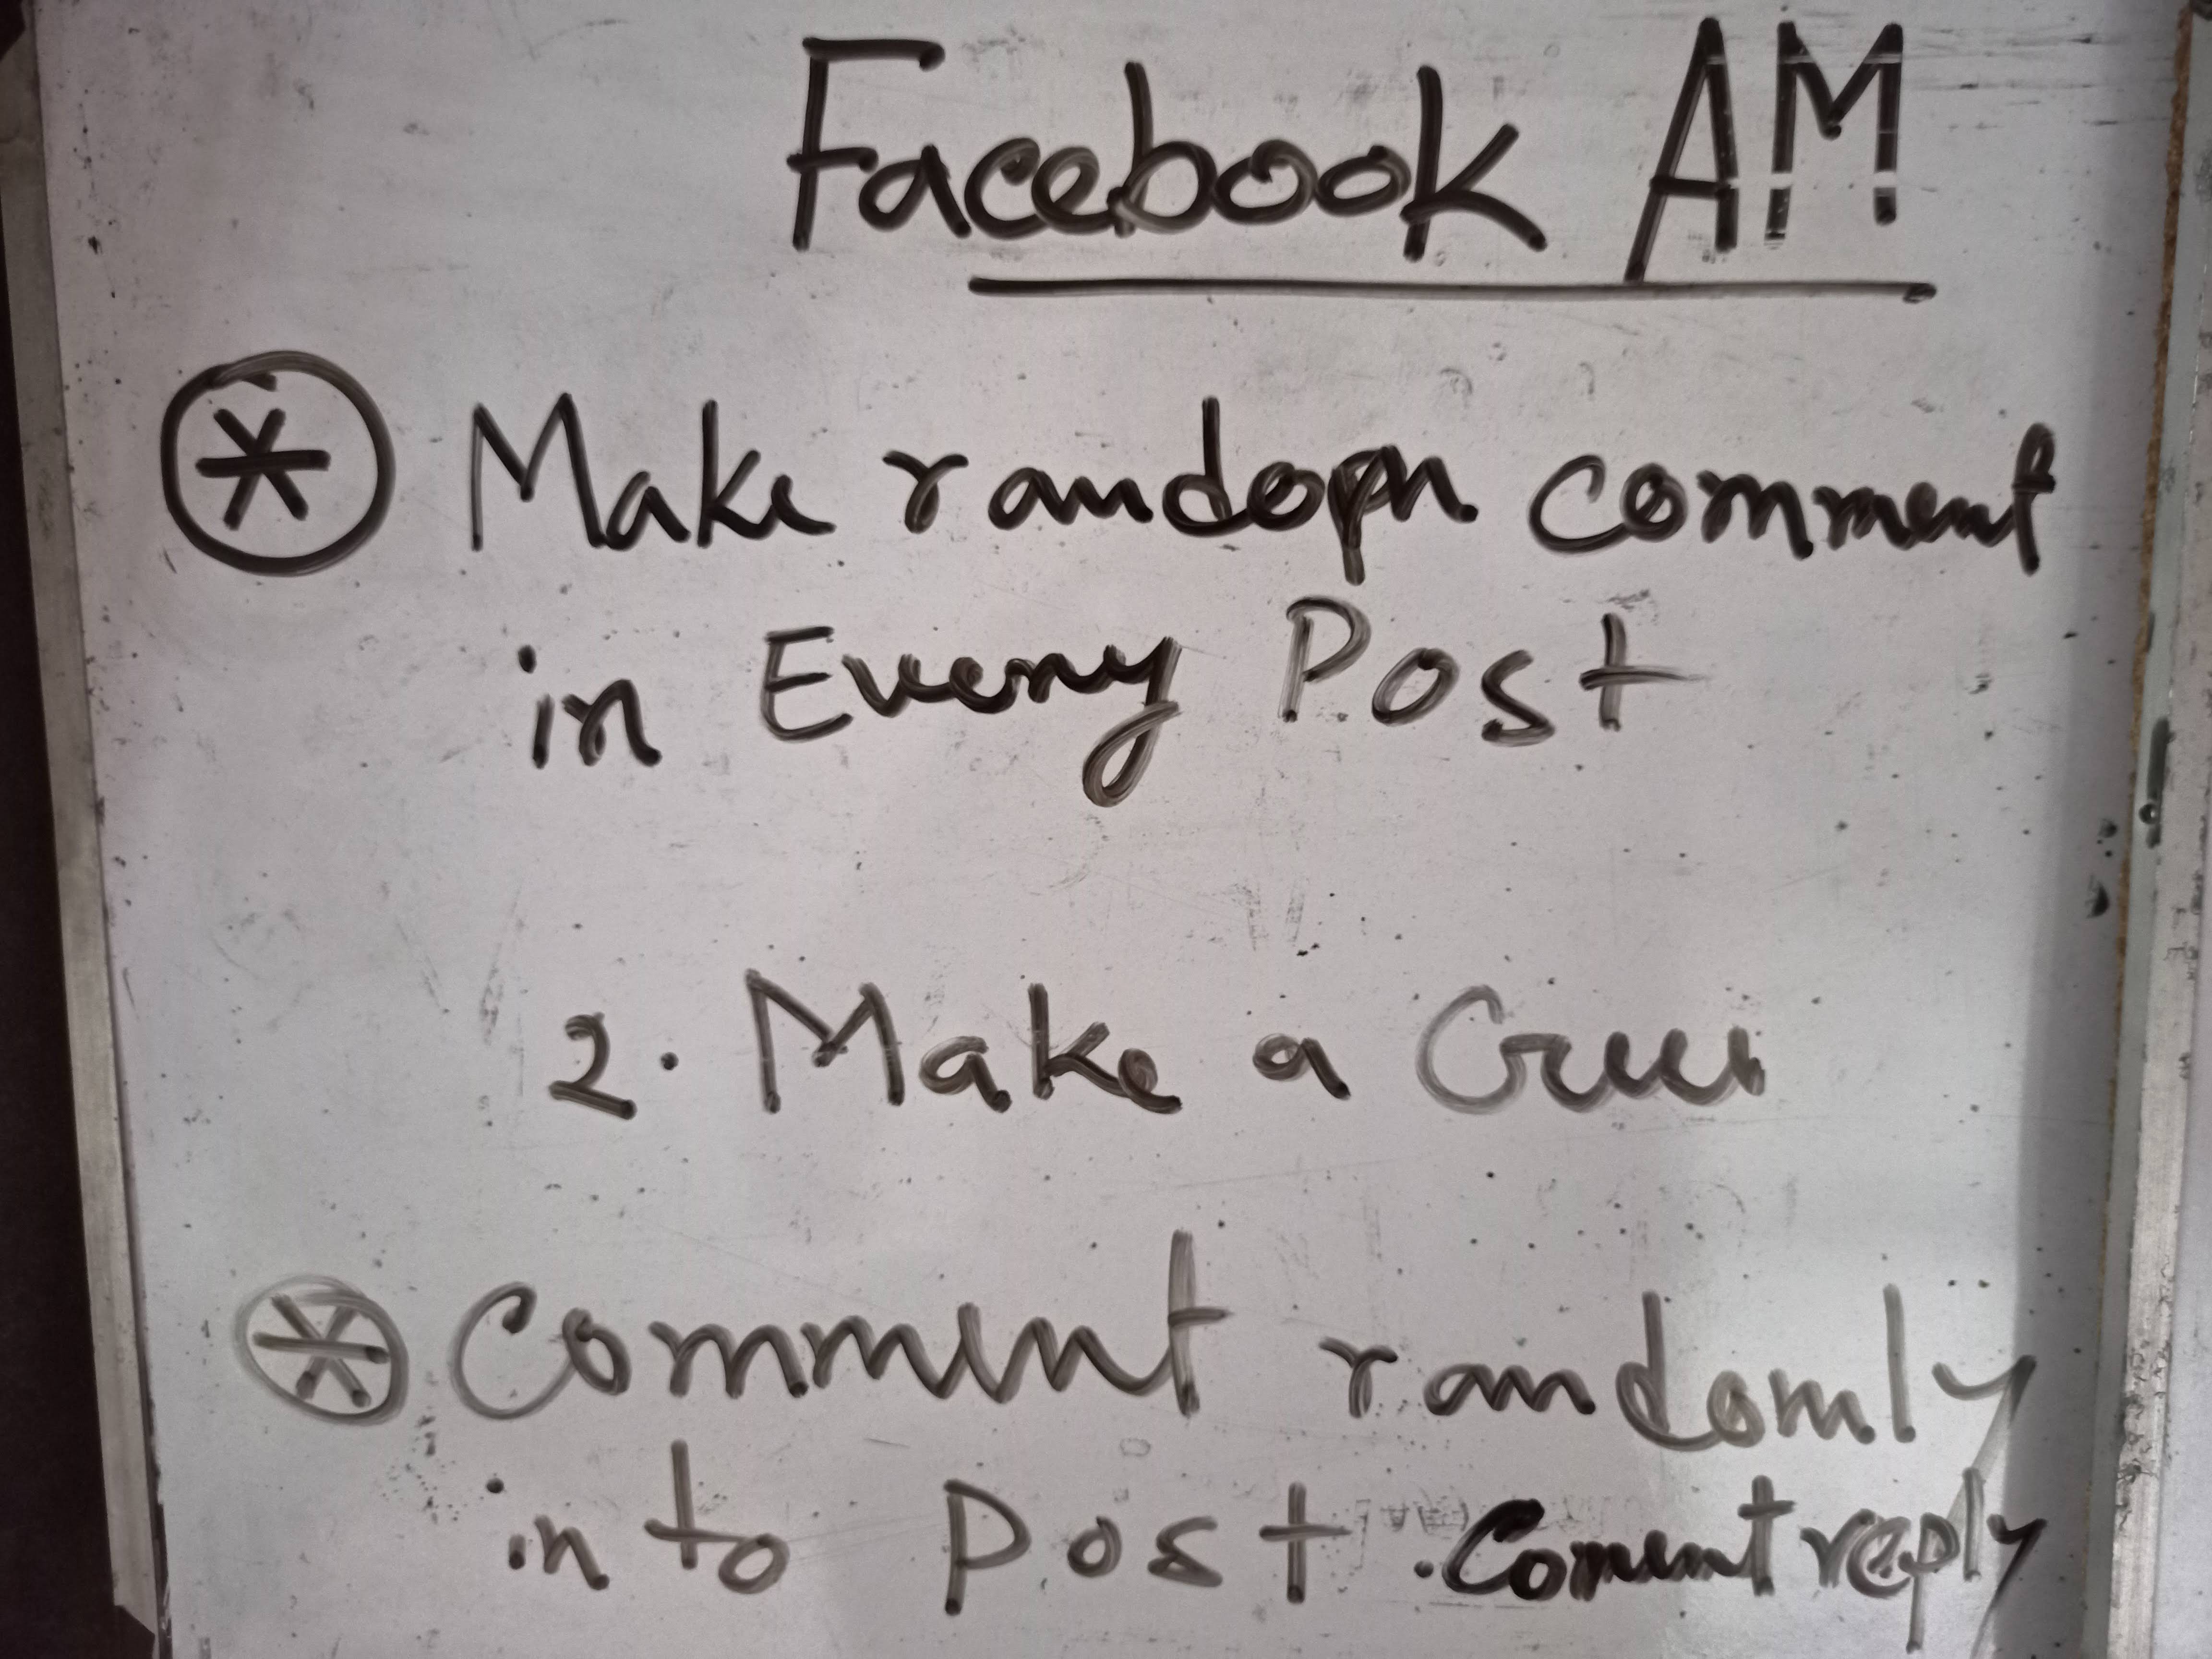 Facebook AM
* Make random comment
in Every Post
2. Make a Gui
* Comment randomly
into Post. Coment reply